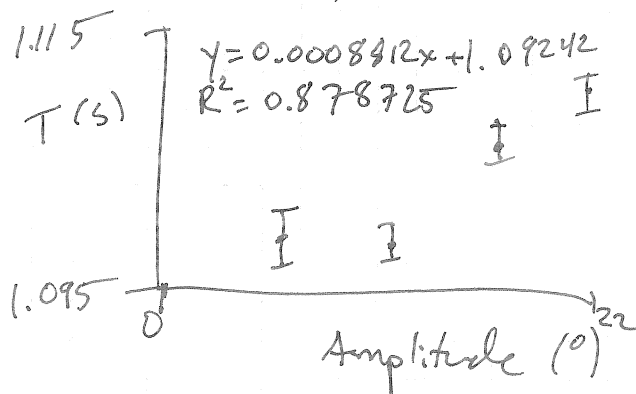 1.115
y=0.0008812x+1.09242
R²=0.878725
T (s)
1.095
0
22
Amplitude (°)